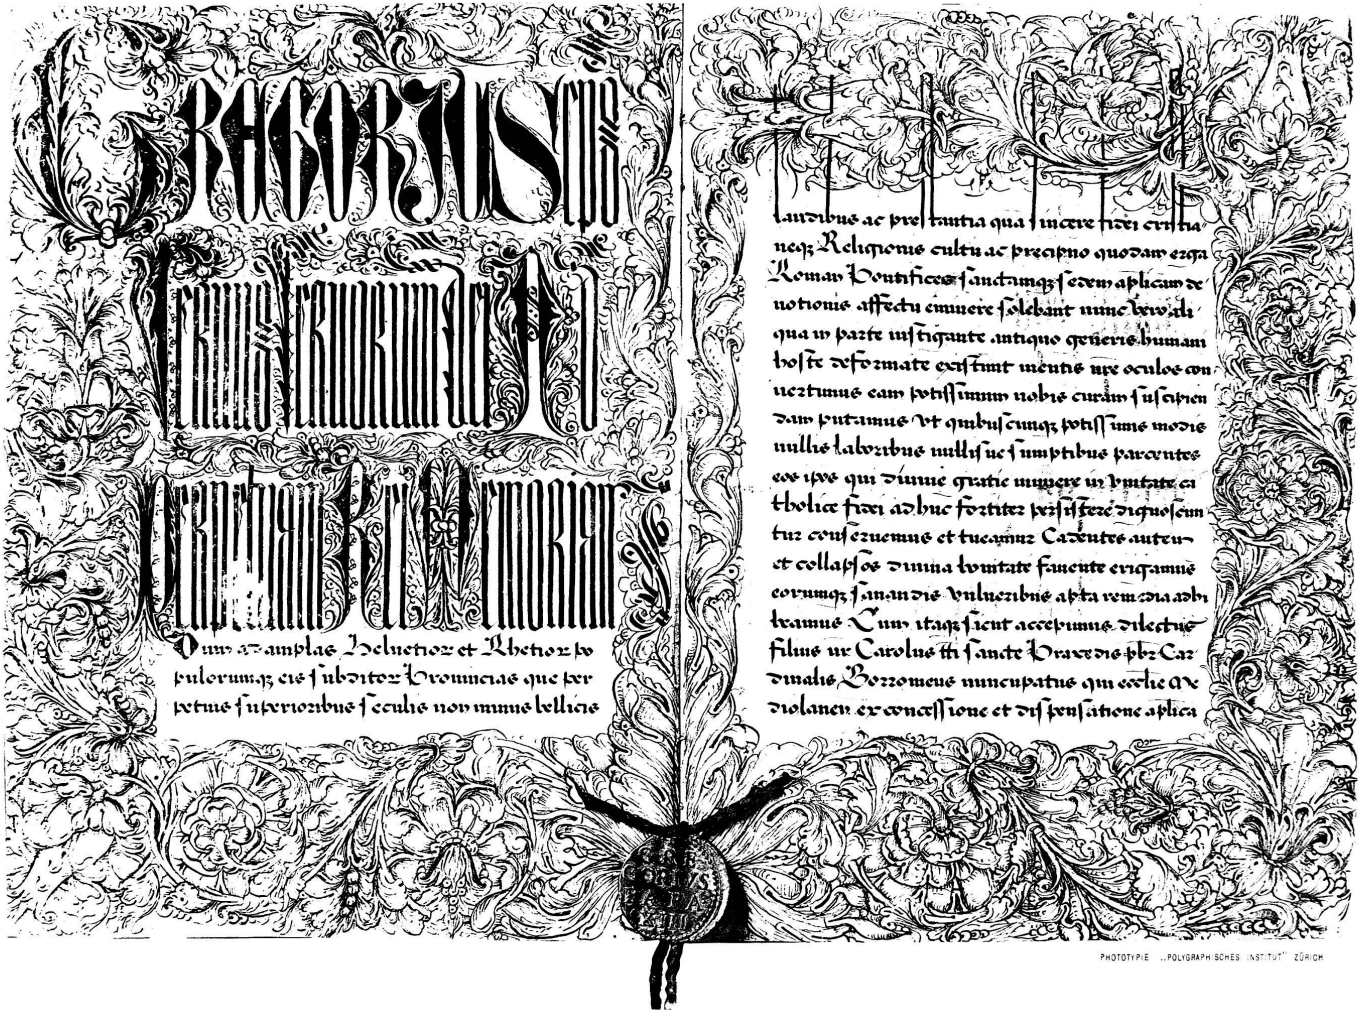 GREGORIUS Eps
Servus Servorum Dei Ad
Perpetuam Rei Memoriam
Dum ad amplas Helvetior et Rhetior po
pulorumq; eis subditor Provincias que per
petuis superioribus seculis non minus bellicis
Laudibus ac prestantia qua sincere fidei cristia-
neq; Religionis cultu ac precipuo quodam erga
Roman Pontifices sanctamq; sedem aplicam de-
votionis affectu eminere solebant nunc vero ali
qua in parte instigante antiquo generis humani
hoste deformate existunt mentis nre oculos con-
vertimus eam potissimum nobis curam suscipien
dam putamus Vt quibuscunq; potissimis modis
nullis laboribus nullisue sumptibus parcentes
eos ipos qui divine gratie munere in Vnitate ca
tholice fidei adhuc fortiter persistere dignoscun
tur conservemus et tueamur Cadentes autem
et collapsos divina bonitate favente erigamus
eorumq; sanandis Vulneribus apta remedia adhi
beamus Cum itaq; sicut accepimus dilectus
filius nr Carolus tti sancte Praxedis pbr Car
dinalis Borromeus nuncupatus qui ecclie Me
diolanen ex concessione et dispensatione aplica
GRE
GORIVS
PAPA
XIII
PHOTOTYPIE „POLYGRAPHISCHES INSTITUT" ZÜRICH